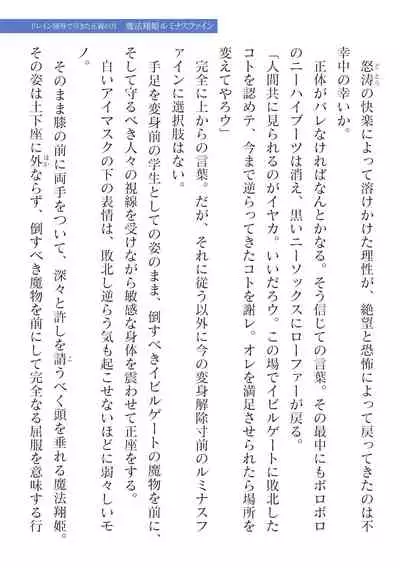 ドレイン園外で引きた正義の刃　魔法翔姫ルミナスファイン
怒涛の快楽によって溶けかけた理性が、絶望と恐怖によって戻ってきたのは不
どとう
幸中の幸いか。
正体がバレなければなんとかなる。そう信じての言葉。その最中にもボロボロ
のニーハイブーツは消え、黒いニーソックスにローファーが戻る。
「人間共に見られるのがイヤカ。いいだろウ。この場でイビルゲートに敗北した
コトを認めテ、今まで逆らってきたコトを謝レ。オレを満足させられたら場所を
変えてやろウ」
完全に上からの言葉。だが、それに従う以外に今の変身解除寸前のルミナスフ
ァインに選択肢はない。
手足を変身前の学生としての姿のまま、倒すべきイビルゲートの魔物を前に、
そして守るべき人々の視線を受けながら敏感な身体を震わせて正座をする。
白いアイマスクの下の表情は、敗北し逆らう気も起こせないほどに弱々しいモ
ノ。
そのまま膝の前に両手をついて、深々と許しを請うべく頭を垂れる魔法翔姫。
こ
その姿は土下座に外ならず、倒すべき魔物を前にして完全なる屈服を意味する行
ほか